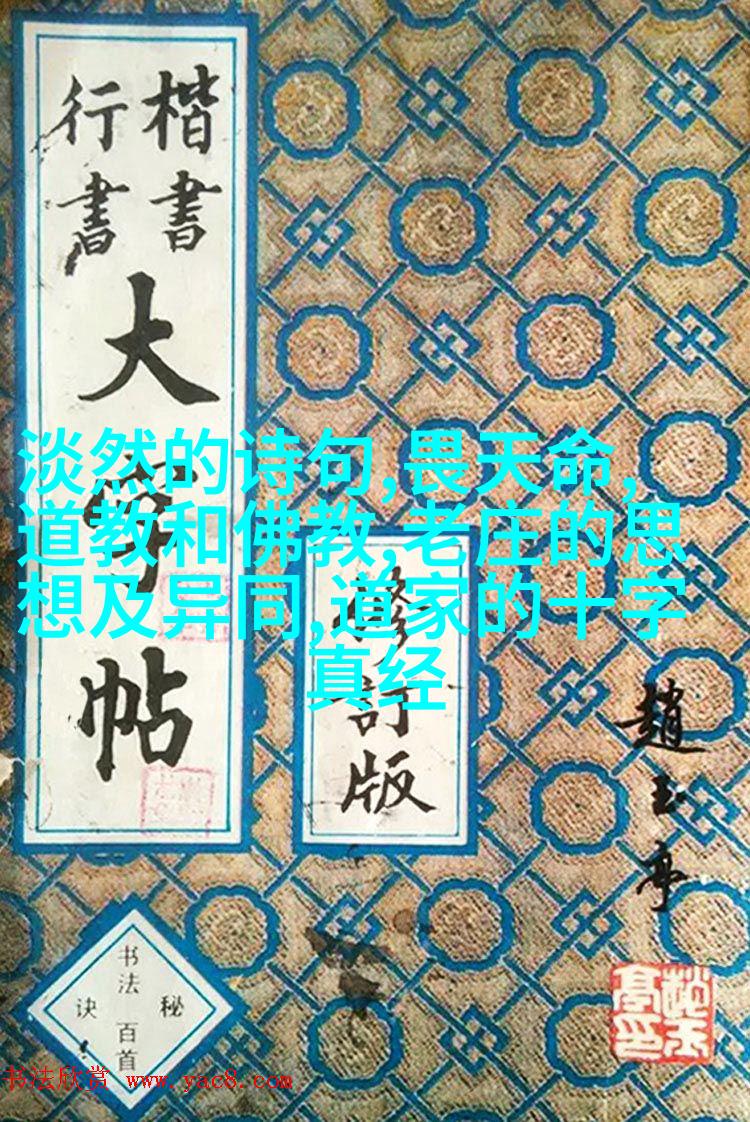 楷書
行書
大字帖
修訂版
趙玉亭
书法百首
秘
诀
淡然的诗句,畏天命,
道教和佛教,老庄的思
想及异同,道家的十字
真经
书法欣赏 www.yac8.com